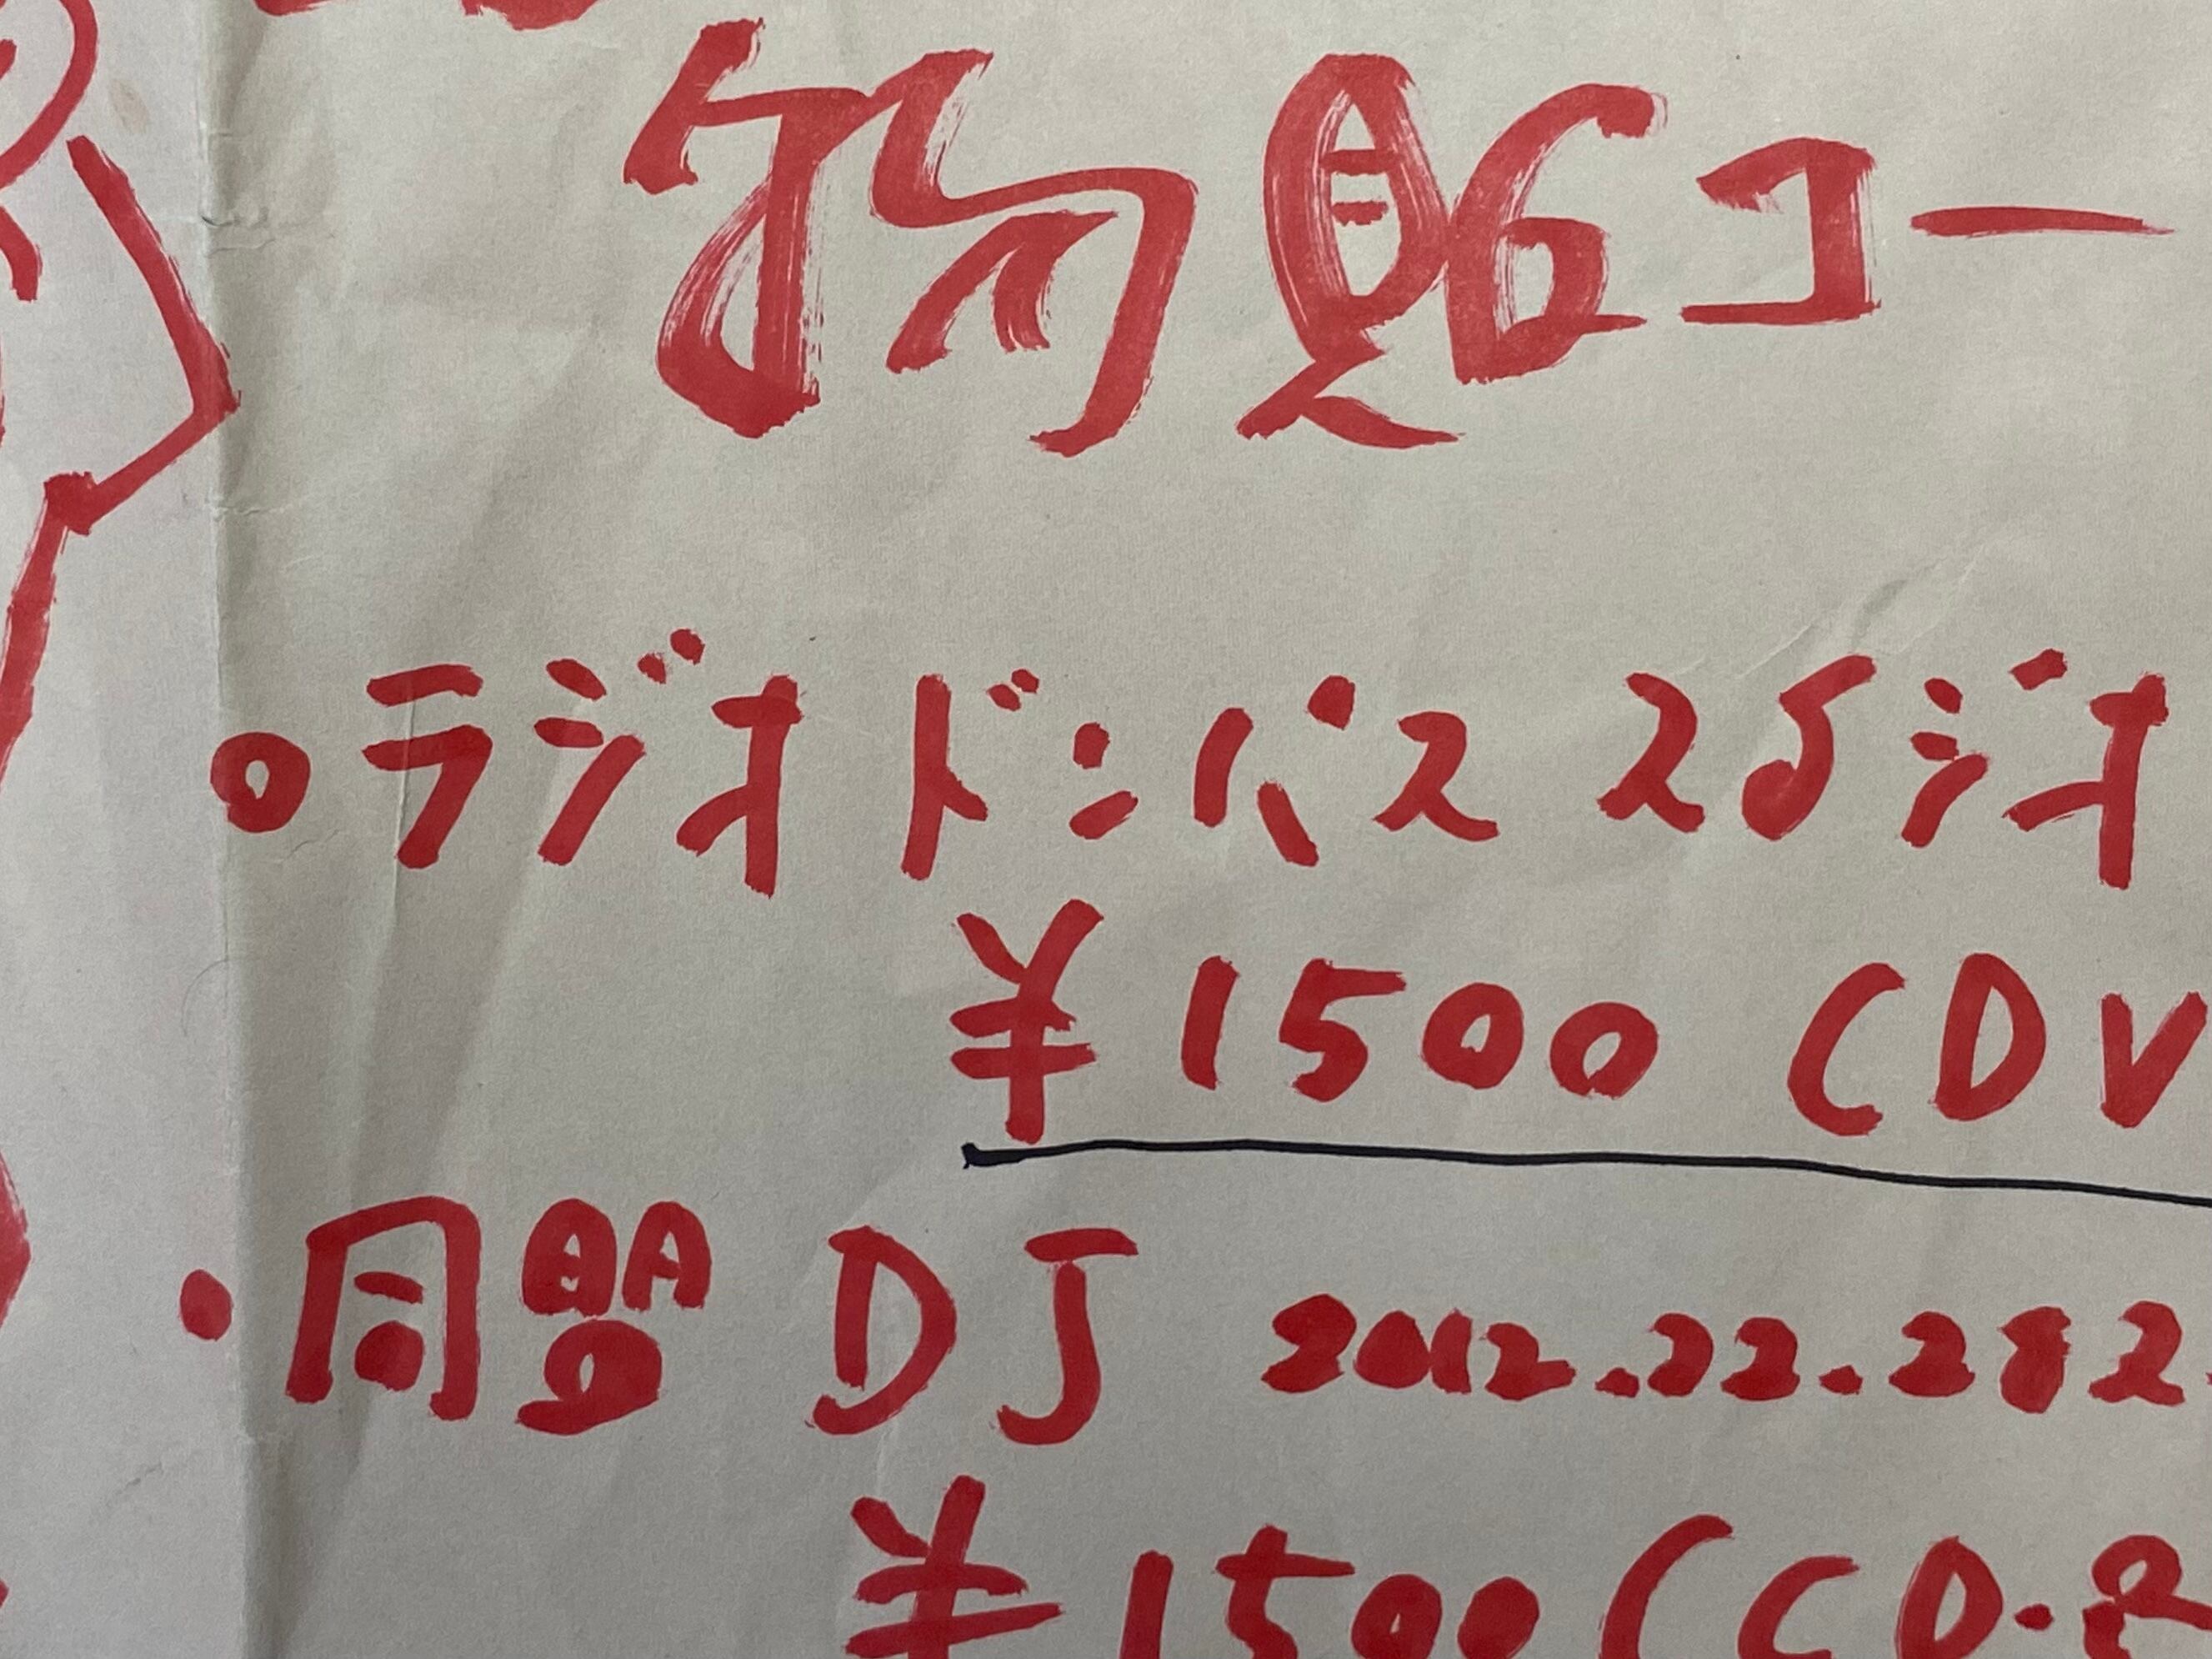 物販コー
○ラジオドンバス 25ジオ
¥1500 (DV
・同盟 DJ 2012.22.282.
¥1500 (CD-R